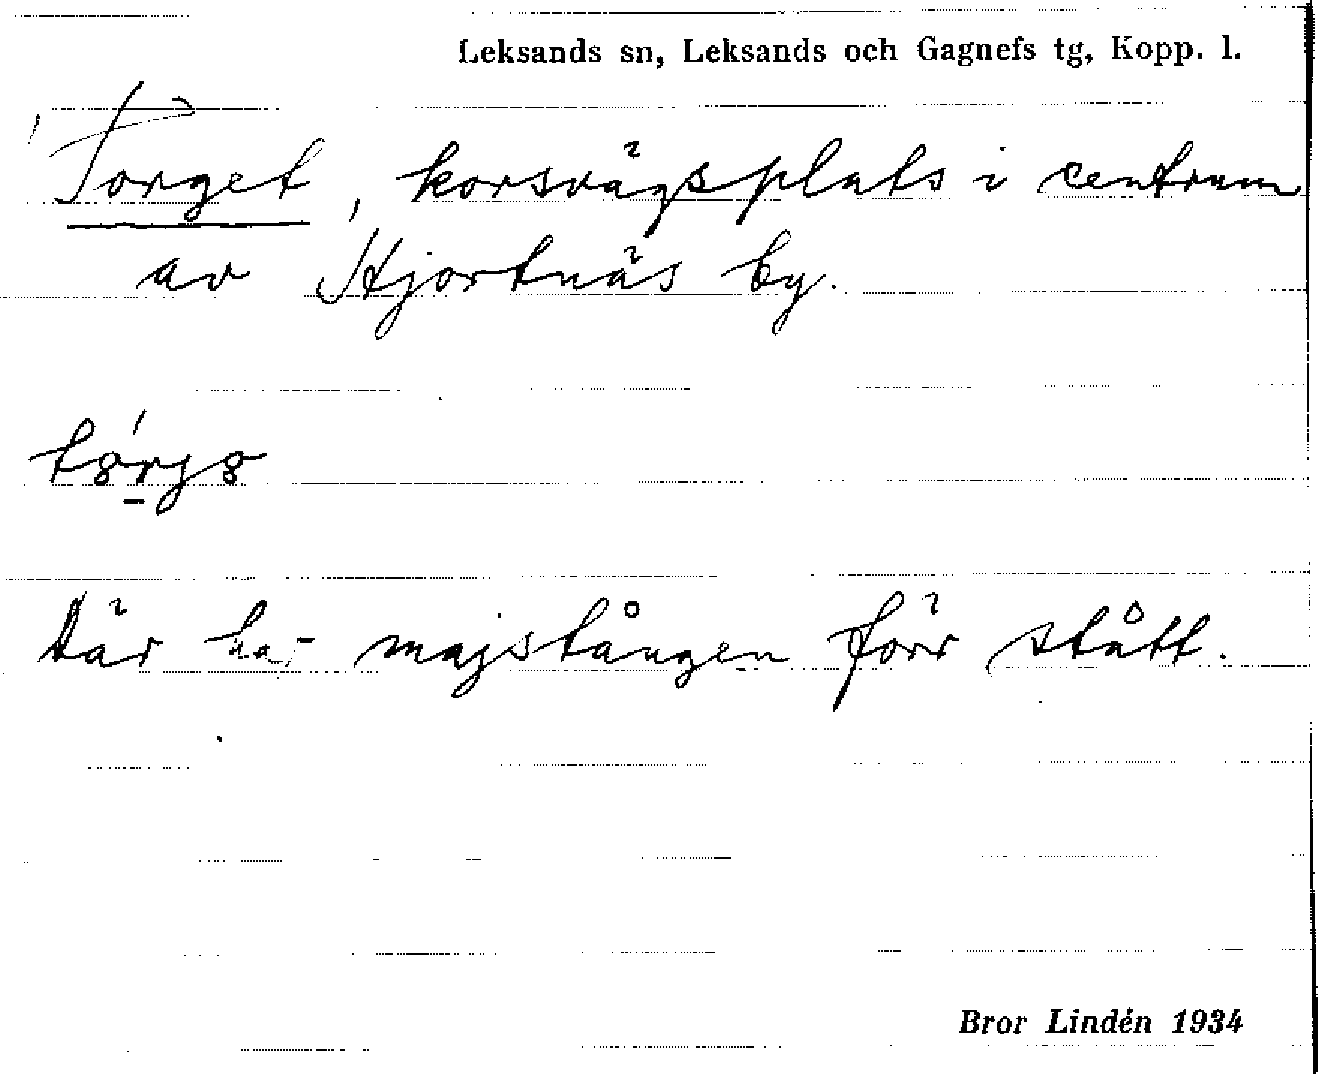 Leksands sn, Leksands och Gagnefs tg, Kopp. l.
Torget, korsvägsplats i centrum
av Hjortnäs by.
Där har majstången förr stått.
Bror Lindén 1934